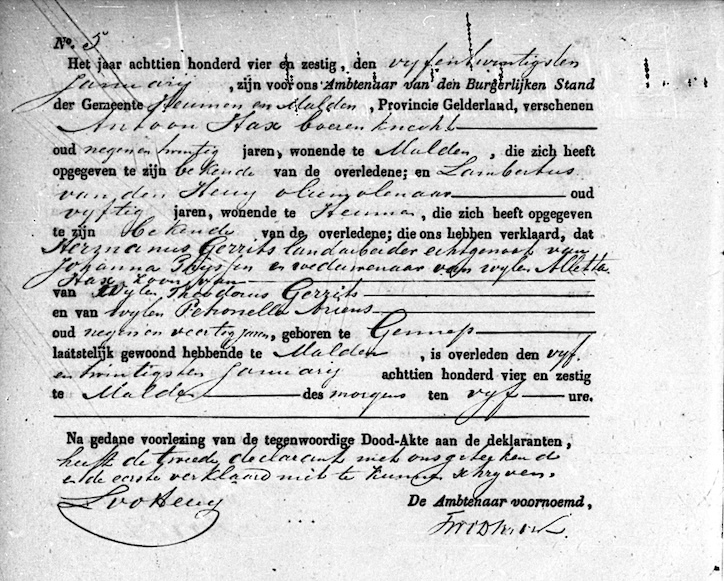 No. 5
Het jaar achttien honderd vier en zestig, den vyfentwintigsten
Januarij, zijn voor ons Ambtenaar van den Burgerlijken Stand
der Gemeente Heumen en Malden, Provincie Gelderland, verschenen
Antoon Hax boerenknecht
oud negenentwintig jaren, wonende te Malden, die zich heeft
opgegeven te zijn bekende van de overledene; en Lambertus
van den Heuy oliemolenaar oud
vyftig jaren, wonende te Heumen, die zich heeft opgegeven
te zijn bekende van de overledene; die ons hebben verklaard, dat
Hermanus Gerrits landarbeider echtgenoot van
Johanna en weduwenaar van wylen Alletta
Hax zoon van
van Wylen Theodorus Gerrits
en van wylen Petronella Ariens
oud negen en veertig jaren, geboren te Gennep
laatstelijk gewoond hebbende te Malden, is overleden den vyf
en twintigsten Januarij achttien honderd vier en zestig
te Malden des morgens ten vyf ure.
Na gedane voorlezing van de tegenwoordige Dood-Akte aan de deklaranten,
heeft de tweede declarant met ons geteekend
en de eerste verklaard niet te kunnen schryven.
De Ambtenaar voornoemd,